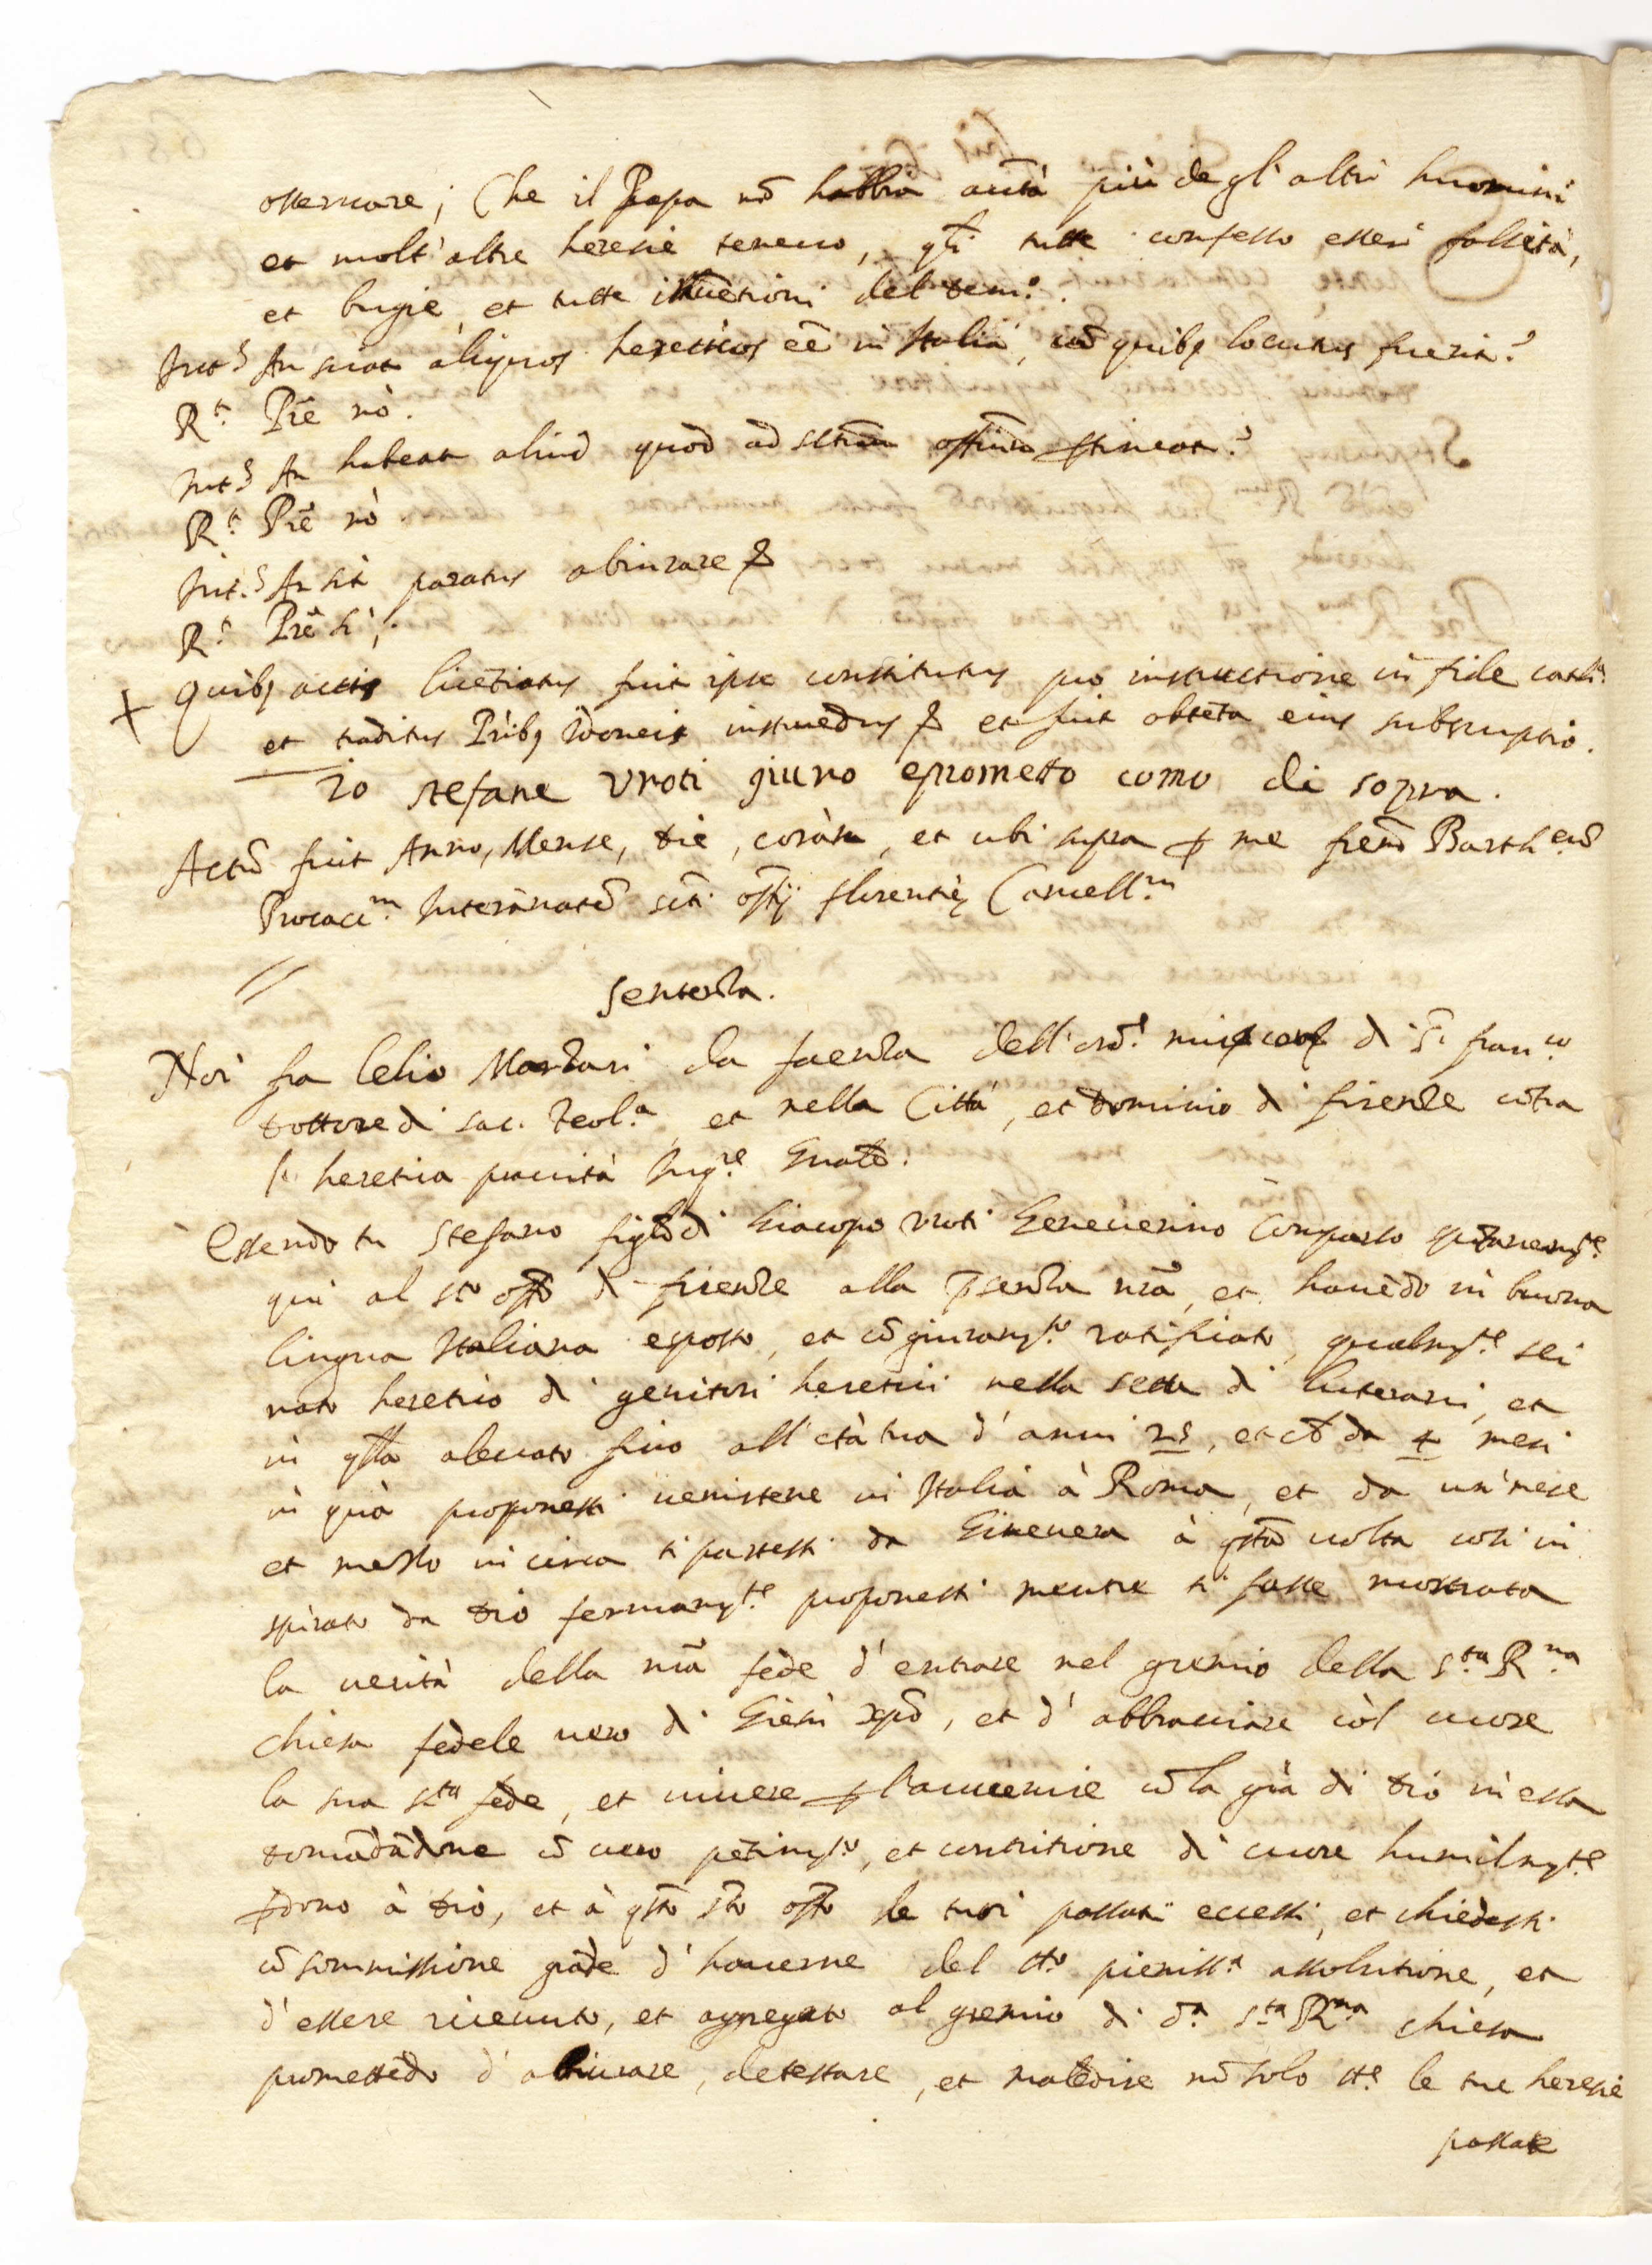 osseruare; Che il Papa nō habbia autà più degl'altri huomini
et molt'altre heresie teneuo, qli tutte confesso esser falsità,
et bugie et tutte inuētioni del Dem.º.
Int.s An sciat aliquos hereticos eē in Italia, cū quibq locutus fuerit?
R.t Prē nò.
Int.s An habeat aliud quod ad sctum offium ptineat?
R.t Prē nò.
Int.s An sit paratus abiurare &
R.t Prē sì,.
Quibq actis licētiatus fuit ipse constitutus pro instructione in fide cath.ca
et traditus Pribq idoneis instruēdus & et fuit obtēta eius subscriptio.
Io stefane vroti giuro eprometto como di sopra.
Actū fuit Anno, Mense, Die, coràm, et ubi supra p me frem Barth.eū
Procacc.m Interānatē scti offij florentię Cancell.m
Sentenza.
Noi fra lelio Marzari da faenza dell'ord.e min. conv. di S. fran.co
Dottore di sac. Teol.a et nella Città, et Dominio di firenze cōtra
l' heretica prauità Inq.re Gnāle.
Essendo tu Stefano figlo di Giacopo vroti Geneuerino comparso spōtaneamte
qui al sto offo di firenze alla pisenza nrā, et hauēdo in buona
lingua Italiana esposto, et cō giuramto ratificato, qualmte sei
nato heretico di genitori heretici nella setta di luterani, et
in qsta aleuato fino all'età tua d'anni 25, et ch da 4 mesi
in quà proponesti uenirtene in Italia à Roma, et da un'mese
et mezzo in circa ti partesti da Gineuera à qsta uolta cosi in
spirato da Dio fermamte proponesti mentre ti fosse mostrata
la uerità della nrā fede d'entrare nel gremio della S.ta R.na
chiesa fedele uera di Giesù xpō, et d'abbracciare col cuore
la sua sta fede, et uiuere p l'auuenire cō la grā di Dio in essa
domādādone cō uero pētimto, et contritione di cuore humilmte
pdono à Dio, et à qsto sto offo de tuoi passati eccessi, et chiedesti
cō sommissione grāde d'hauerne del tto pieniss.a assolutione, et
d'essere riceuuto, et aggregato al gremio di d.a s.ta R.na chiesa
promettēdo d'abiurare, detestare, et maledire nō solo tte le tue heresie
passate